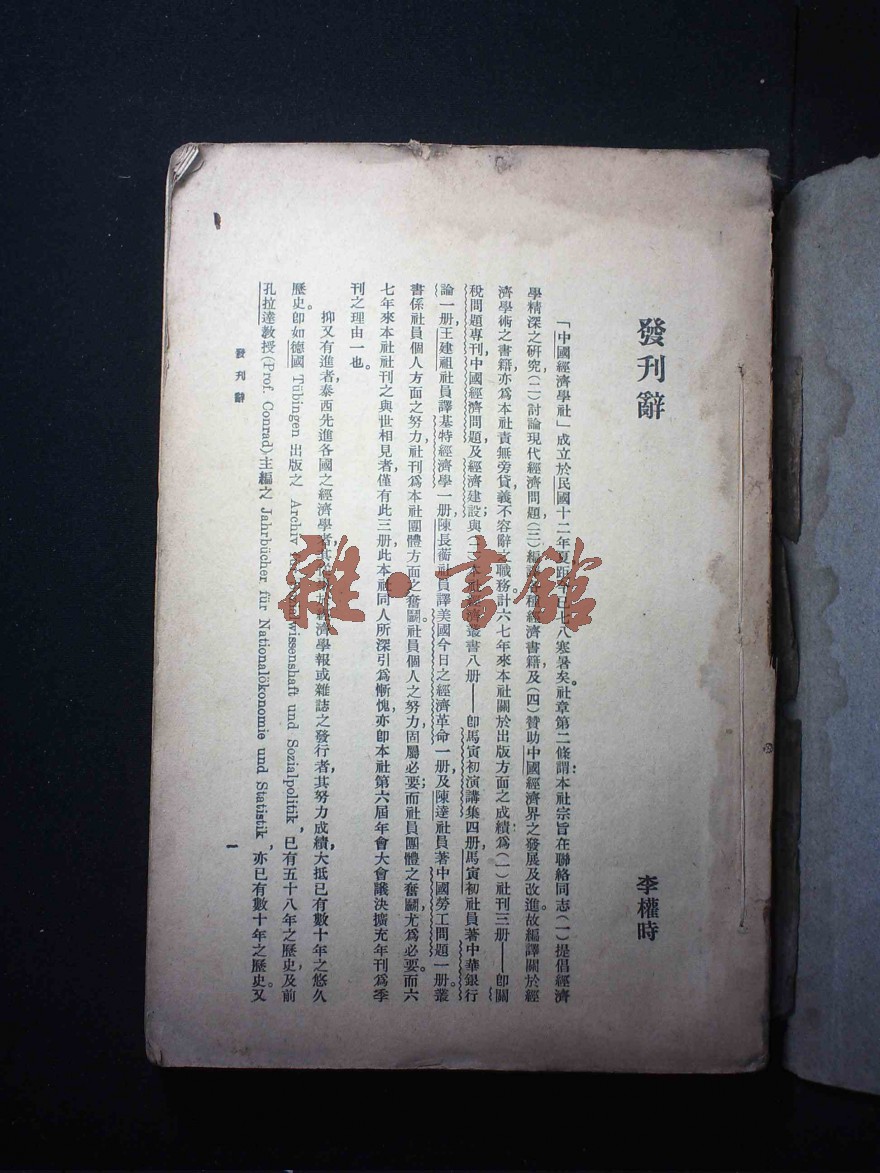 發刊辭
李權時
「中國經濟學社」成立於民國十二年夏,距今已七八寒暑矣。社章第二條謂:本社宗旨在聯絡同志(一)提倡經濟
學精深之研究,(二)討論現代經濟問題,(三)編譯各種經濟書籍,及(四)贊助中國經濟界之發展及改進。故編譯關於經
濟學術之書籍,亦爲本社責無旁貸義不容辭之職務。計六七年來本社關於出版方面之成績爲:(一)社刊三册——卽關
稅問題專刊,中國經濟問題,及經濟建設;與(二)本社經濟叢書八册——卽馬寅初演講集四册,馬寅初社員著中華銀行
論一册,王建祖社員譯基特經濟學一册,陳長蘅社員譯美國今日之經濟革命一册,及陳達社員著中國勞工問題一册。叢
書係社員個人方面之努力,社刊爲本社團體方面之奮鬬。社員個人之努力固屬必要;而社員團體之奮鬬,尤爲必要。而六
七年來本社社刊之與世相見者,僅有此三册,此本社同人所深引爲慚愧,亦卽本社第六屆年會大會議決擴充年刊爲季
刊之理由一也。
抑又有進者,泰西先進各國之經濟學者,其 於經濟學報或雜誌之發行者,其努力成績,大抵已有數十年之悠久
歷史。卽如德國 Tübingen 出版之 Archiv wissenschaft und Sozialpolitik, 已有五十八年之歷史,及前
孔拉達教授(Prof. Conrad)主編之 Jahrbücher für Nationalökonomie und Statistik, 亦已有數十年之歷史。又
發刊辭
一
雜·書館